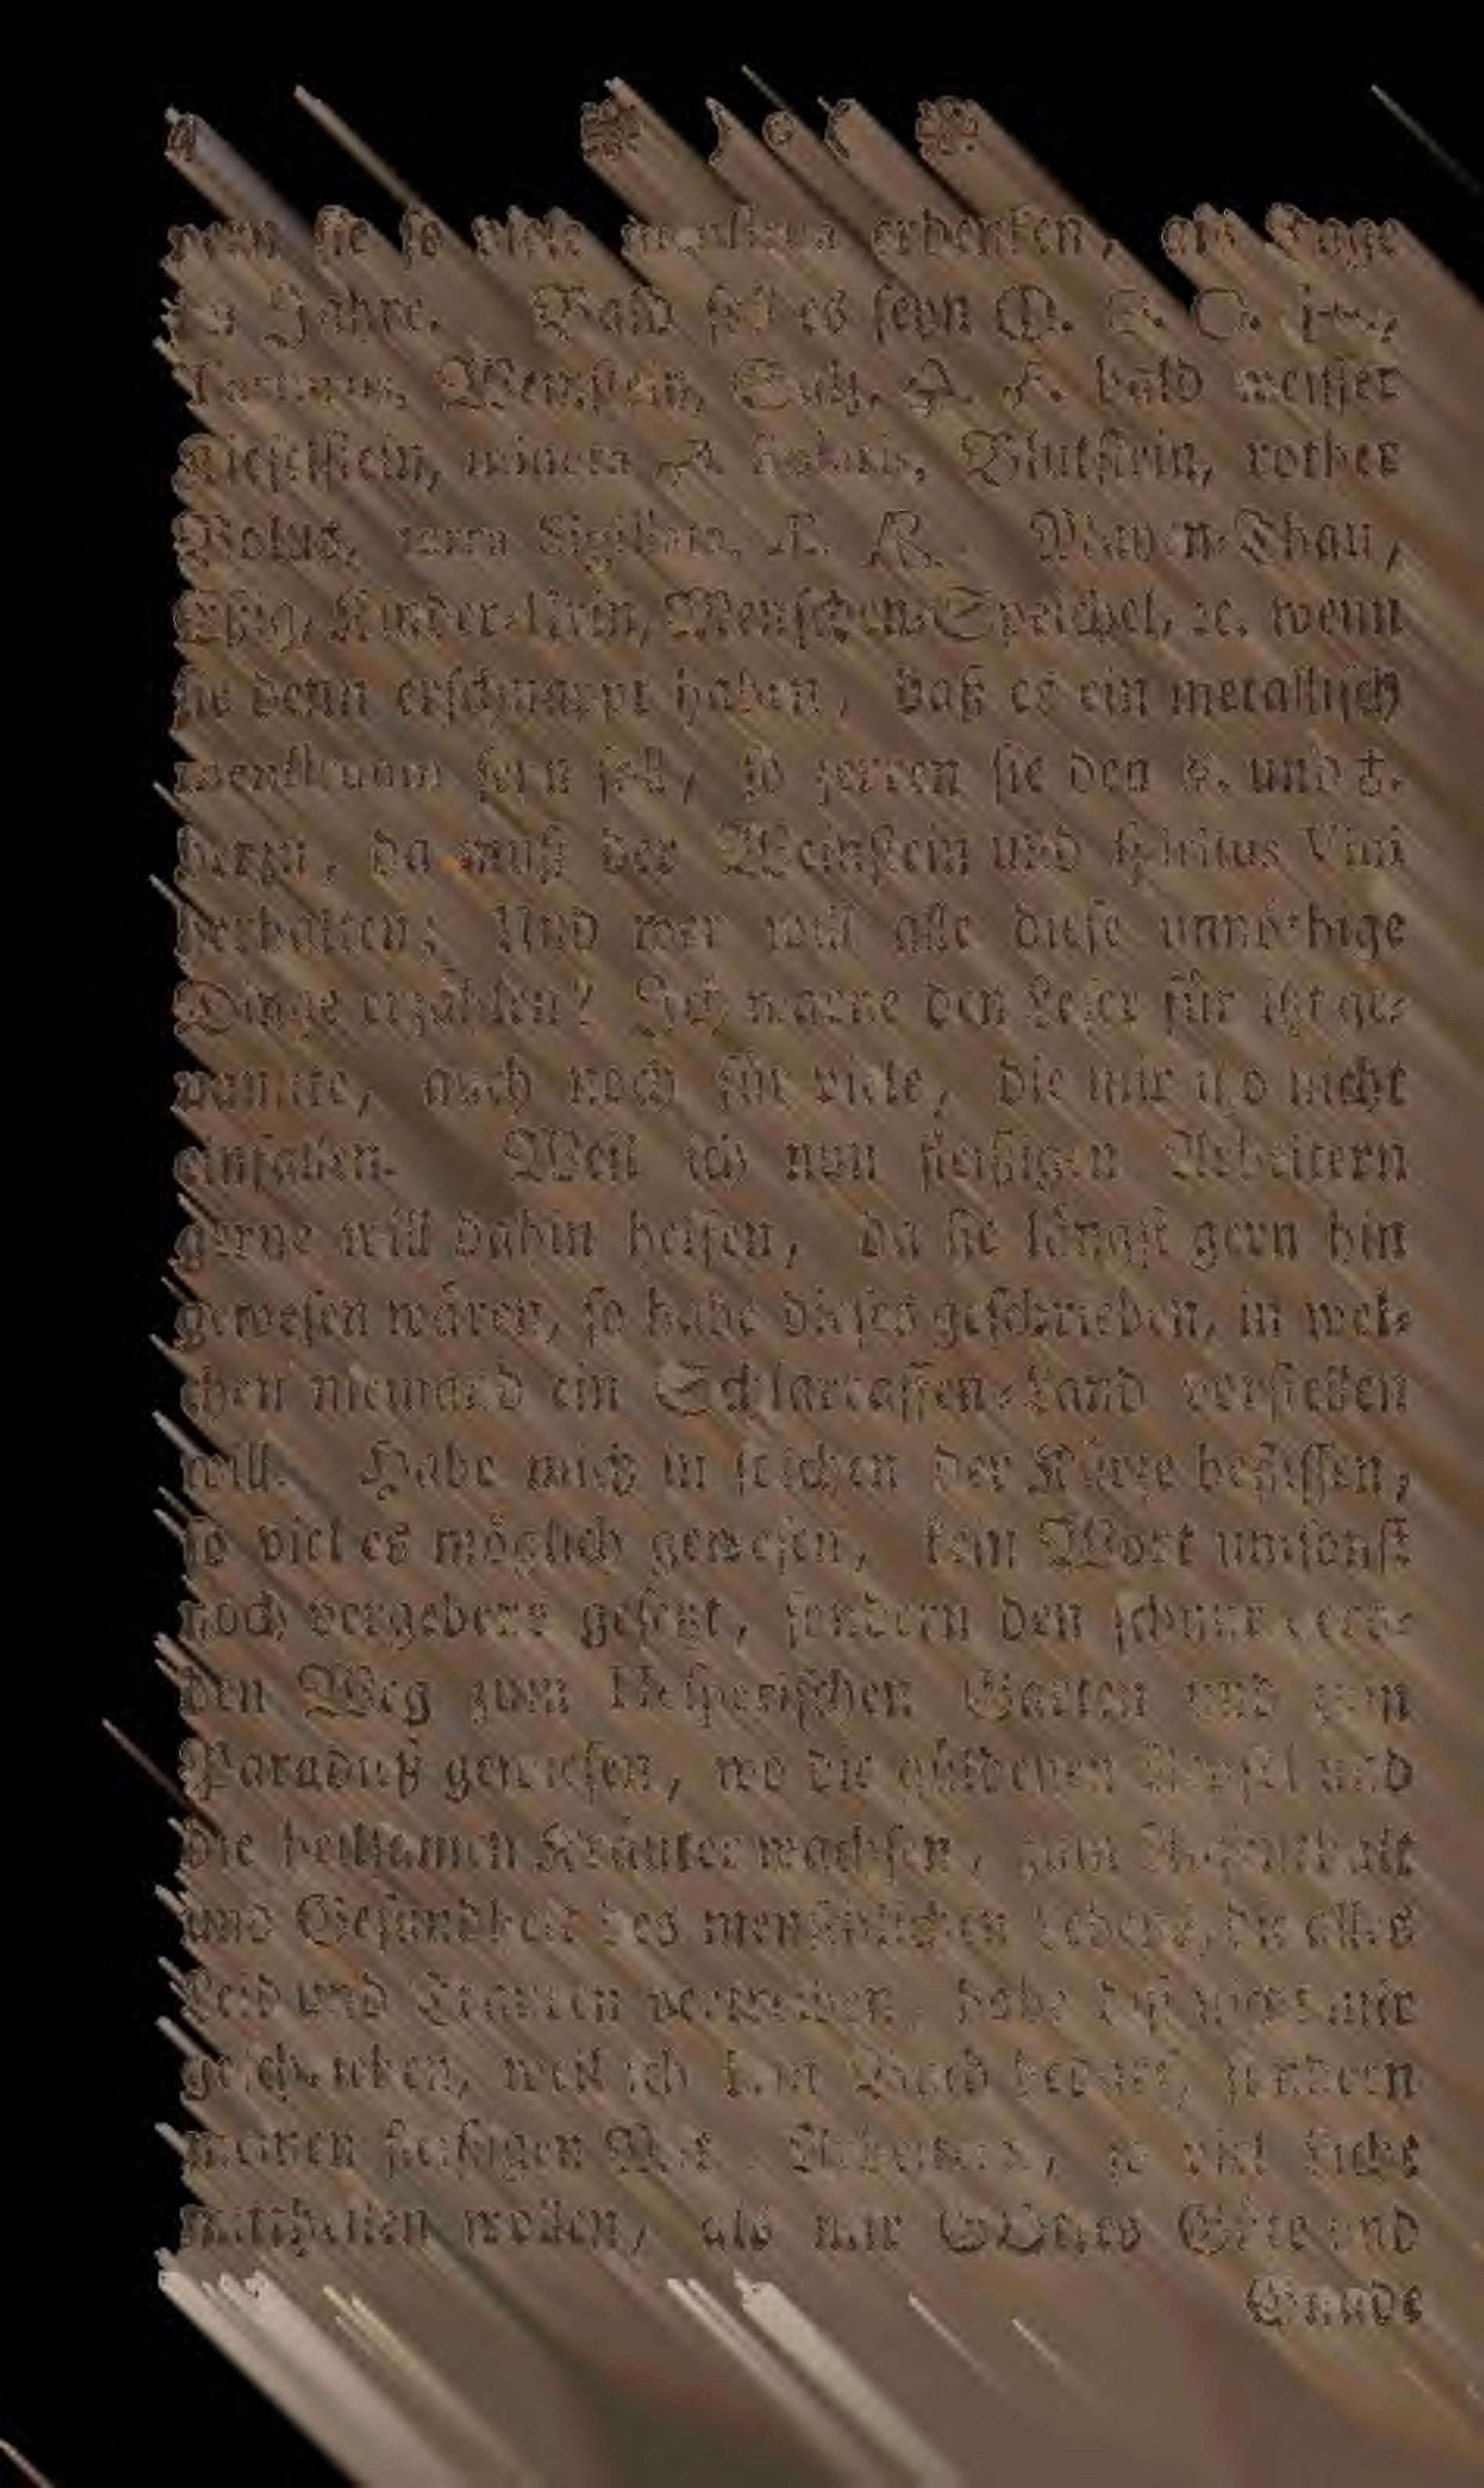 wenn sie so viele menstrua erdenken, als Tage
im Jahre. Bald soll es seyn
Weinstein, Saltz, bald weisser
Kieselstein, minera Blutstein, rother
Bolus, terra Sigillata, Mayen-Thau,
Eßig, Kinder-Urin, Menschen-Speichel, ꝛc. wenn
sie denn erschnappt haben, daß es ein metallisch
menstruum seyn soll, so zerren sie den und
herzu, da muß der Weinstein und spiritus Vini
herhalten; Und wer will alle diese unnöthige
Dinge erzählen? Ich warne den Leser für itzt ge-
nannte, auch noch für viele, die mir itzo nicht
einfallen. Weil ich nun fleißigen Arbeitern
gerne will dahin helfen, da sie längst gern hin
gewesen wären, so habe dieses geschrieben, in wel-
chen niemand ein Schlaraffen-Land vorstellen
will. Habe mich in solchen der Kürtze beflissen,
so viel es möglich gewesen, kein Wort umsonst
noch vergebens gesetzt, sondern den schnur
den Weg zum Hesperischen Garten und zum
Paradieß gewiesen, wo die güldenen Aepfel und
die heilsamen Kräuter wachsen, zum Auffenthalt
und Gesundheit des menschlichen Lebens, die alles
Leid und Trauren vertreiben, habe diß nicht mir
geschrieben, weil ich kein Buch bedarf, sondern
meinen fleißigen Mit-Arbeitern, so viel Licht
mittheilen wollen, als mir GOttes Güte und
Gnade